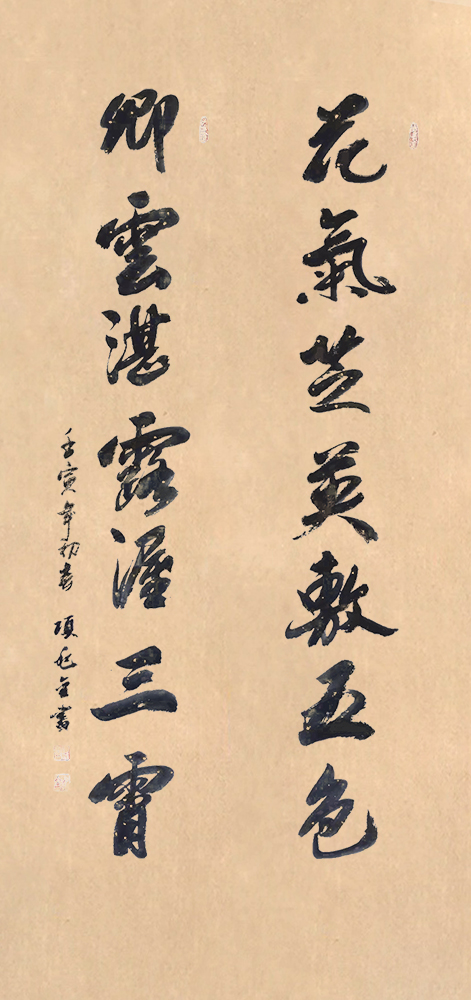 花氣芝英敷五色
卿雲湛露渥三霄
壬寅年初春 項 金書